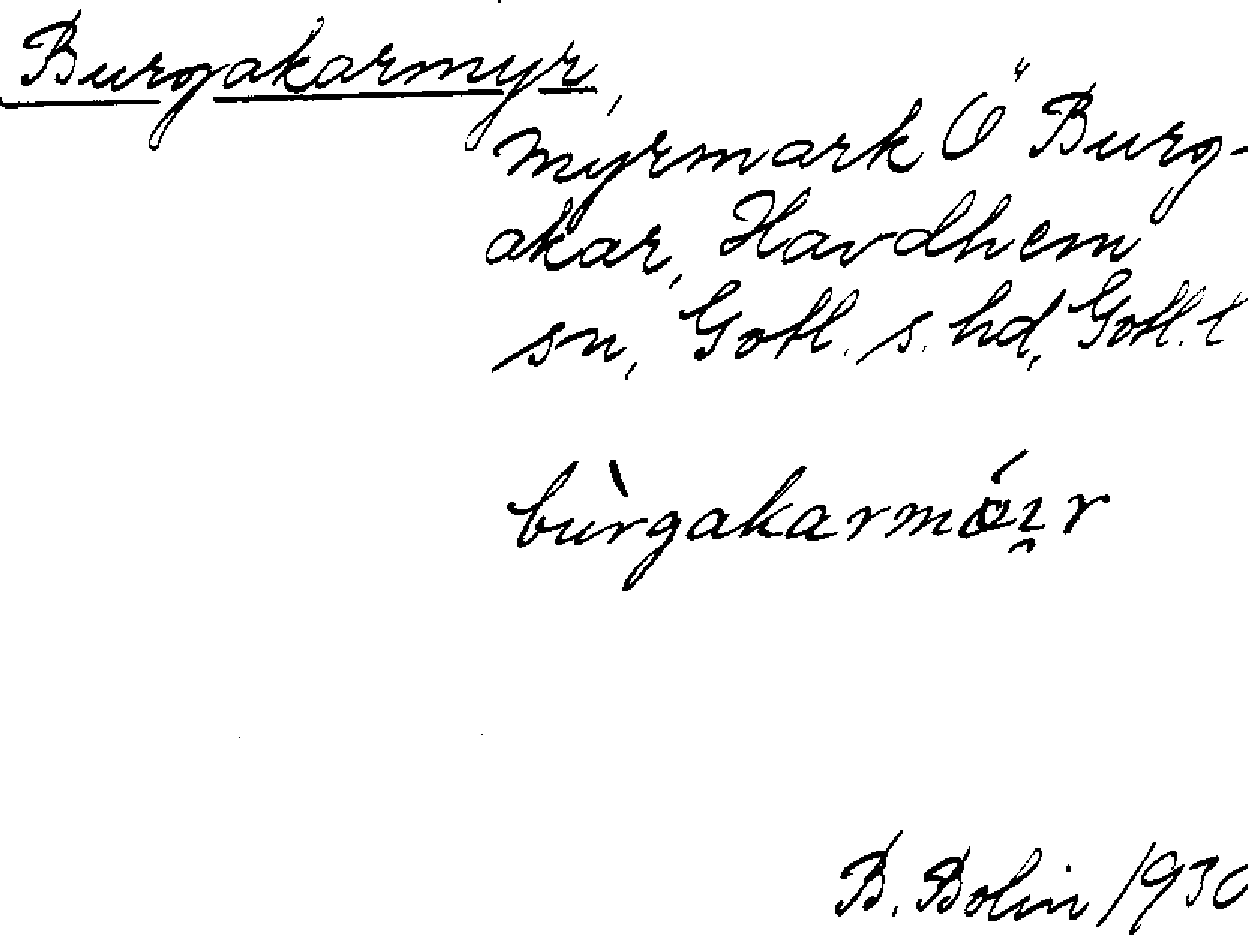 Burgakarmyr,
myrmark Ö Burg-
akar, Havdhem
sn, Gotl. s. hd, Gotl. l
B. Bolin 1930